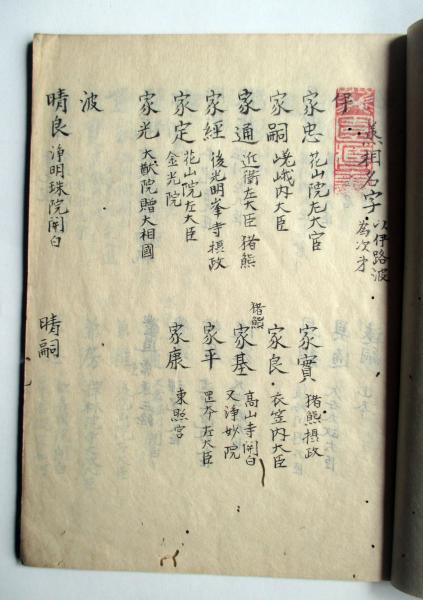 丞相名字 以伊路波
為次才
伊
家忠 花山院左大臣
家實 猪熊摂政
家嗣 嵯峨内大臣
家良 衣笠内大臣
家通 近衛左大臣 猪熊
猪熊
家基 高山寺関白
又浄妙院
家經 後光明峯寺摂政
家平 岡本左大臣
家定 花山院左大臣
金光院
家康 東照宮
家光 大猷院贈大相國
波
晴良 浄明珠院関白
晴嗣